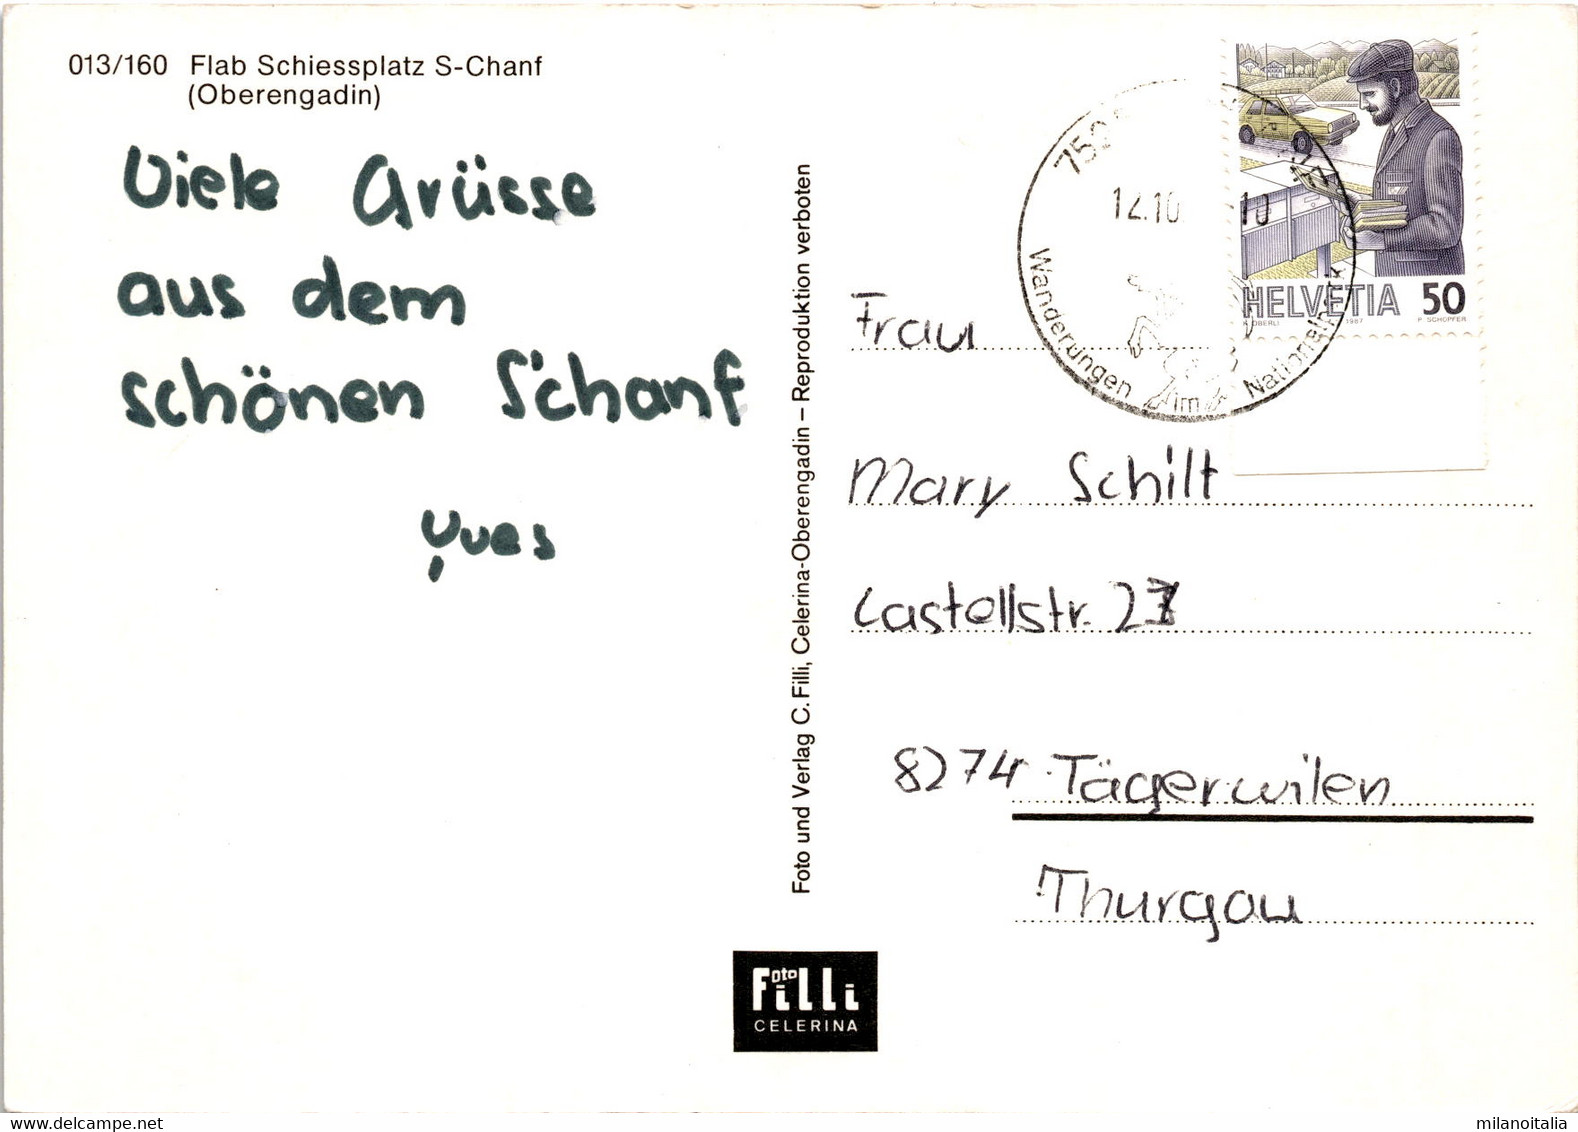 013/160 Flab Schiessplatz S-Chanf
(Oberengadin)
Viele Grüsse
aus dem
schönen S'chanf
Yves
Foto und Verlag C. Filli, Celerina-Oberengadin – Reproduktion verboten
12.10
10
Wanderungen im
HELVETIA 50
H. OBERLI 1987 P. SCHOPFER
Frau
Mary Schilt
Castellstr. 27
8274 Tägerwilen
Thurgau
Foto Filli
CELERINA
www.delcampe.net
milanoitalia